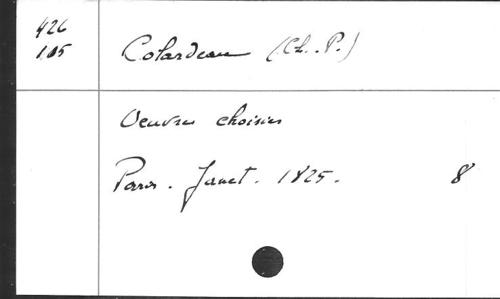 426
105
Colardeau (Ch. P.)
Oeuvres choisies
Paris. Janet. 1825. 8